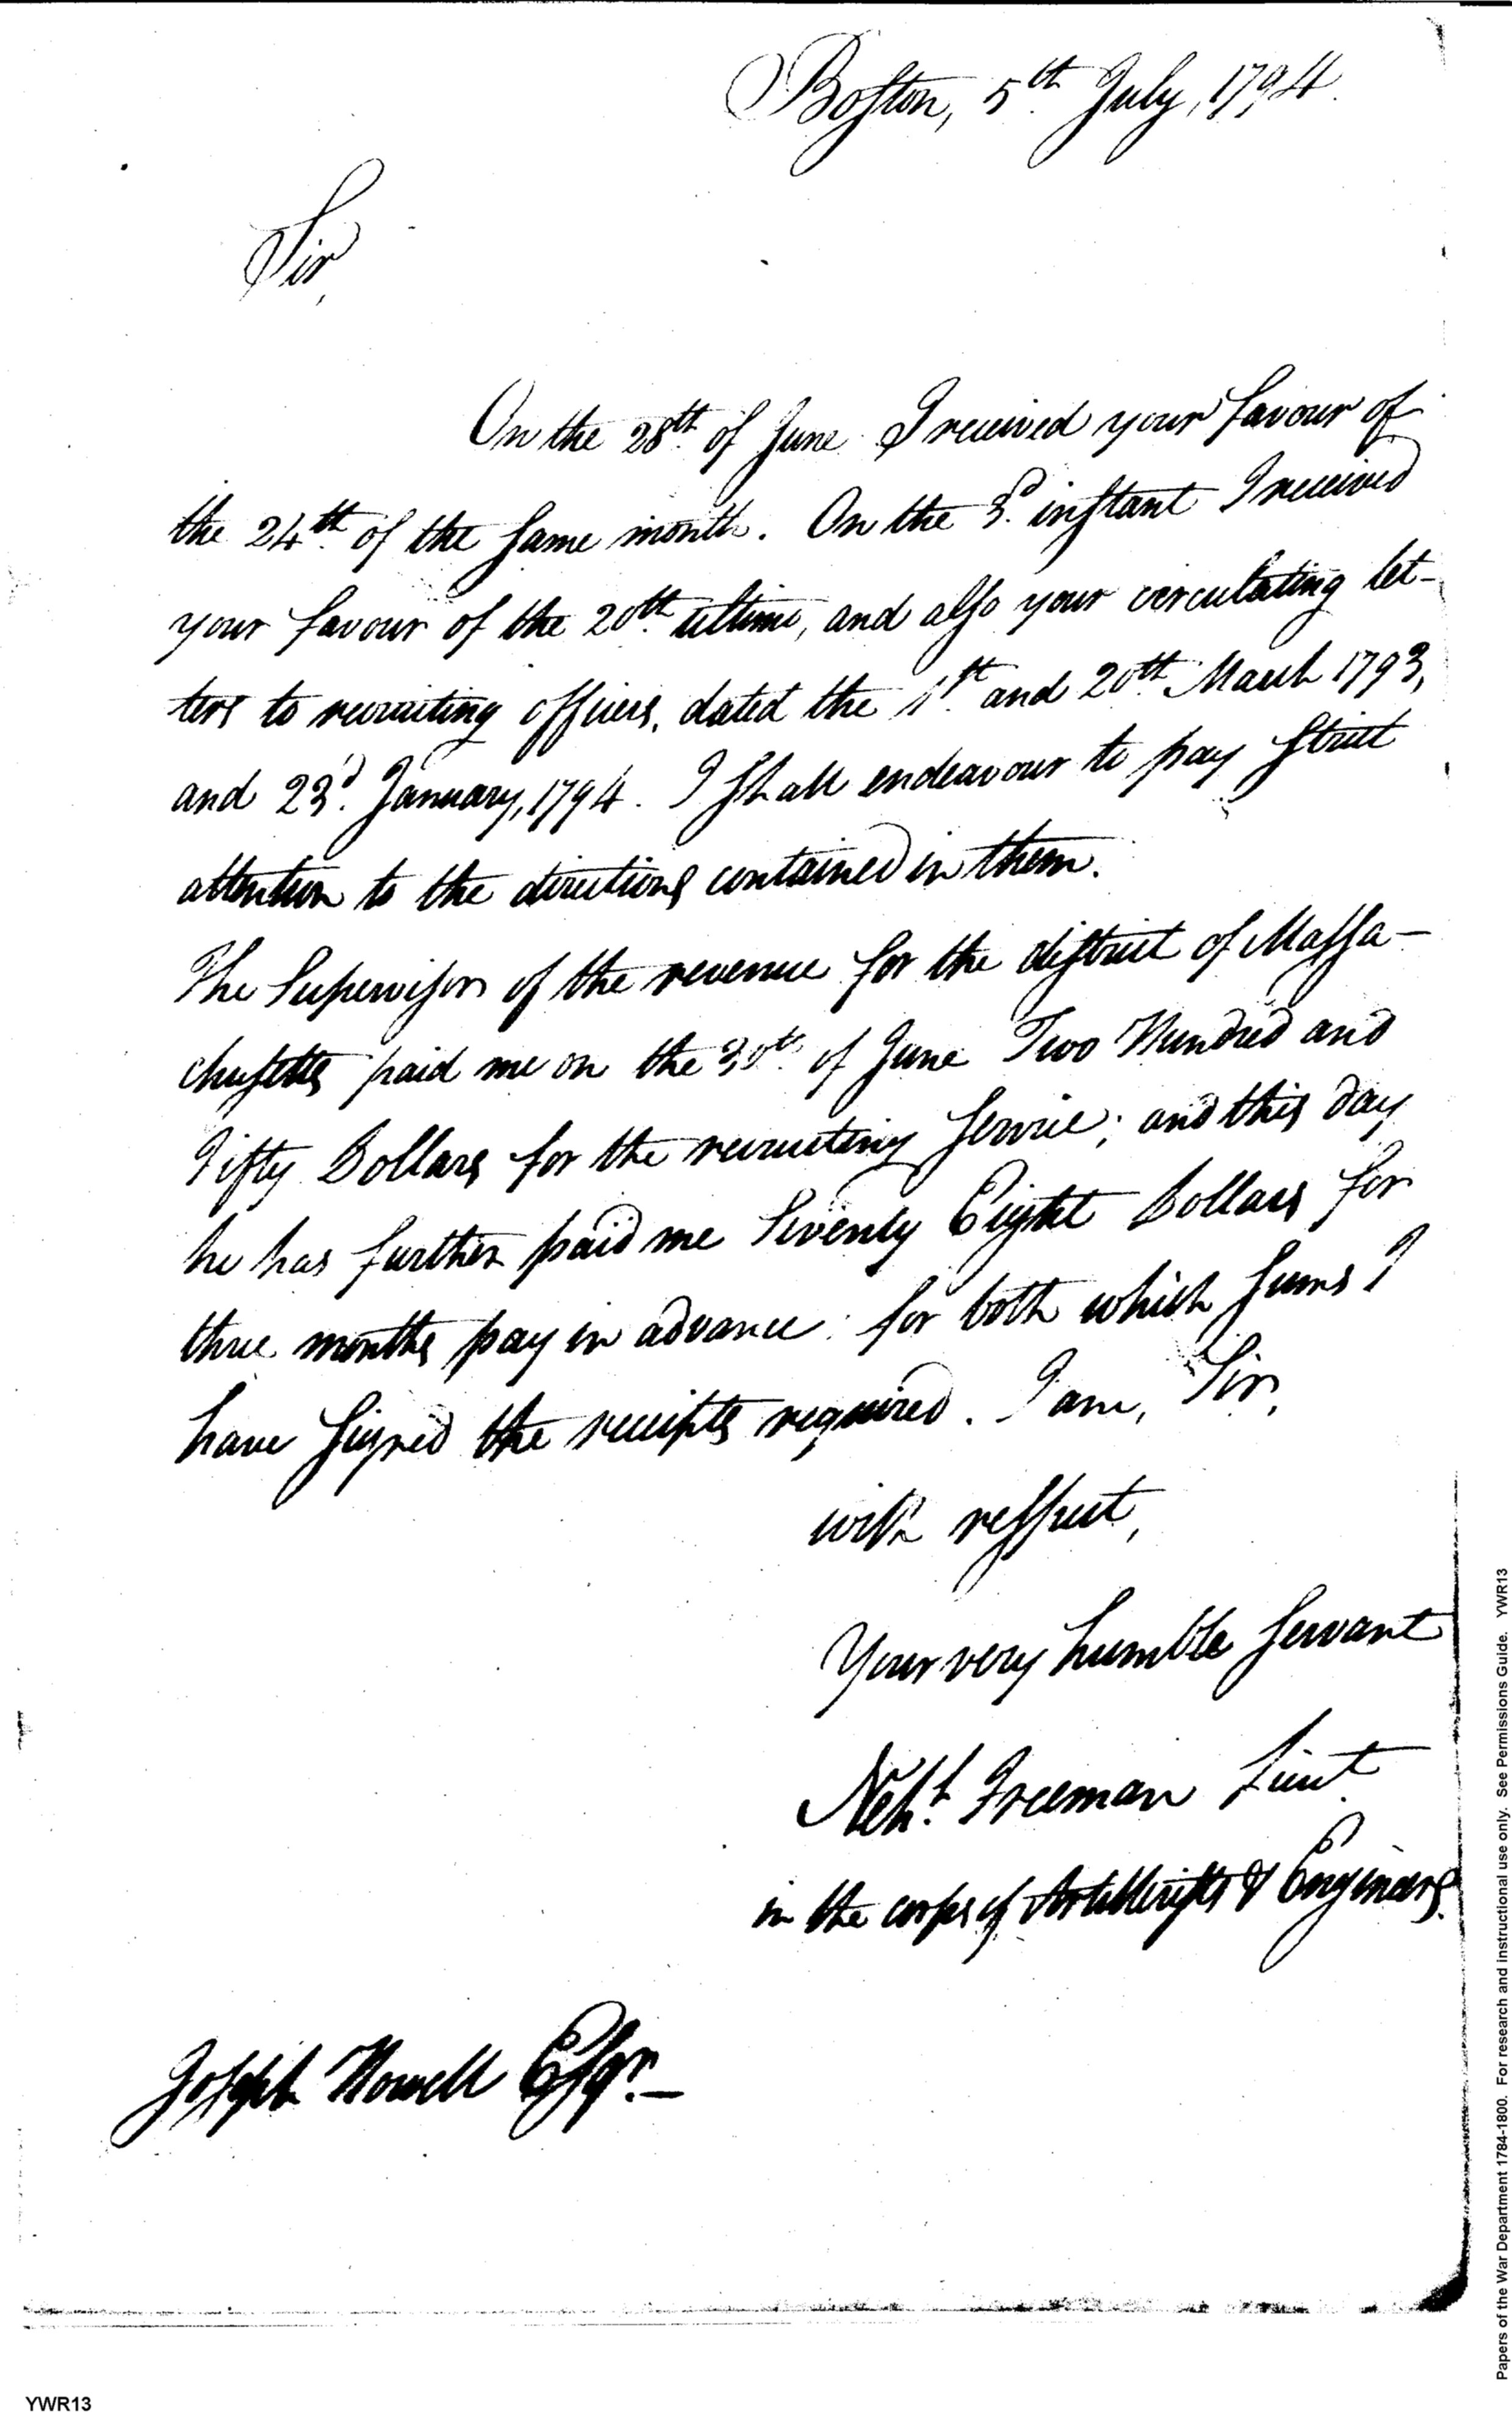 Boston, 5th July, 1794.
Sir,
On the 28th of June I received your favour of
the 24th of the same month. On the 3d instant I received
your favour of the 20th ultimo, and also your circulating let-
ters to recruiting officers, dated the 1st and 20th March 1793,
and 23d January, 1794. I shall endeavour to pay strict
attention to the directions contained in them.
The Supervisor of the revenue for the district of Massa-
chusetts paid me on the 30th of June Two Hundred and
Fifty Dollars for the recruiting service; and this day
he has further paid me Seventy Eight Dollars for
three months pay in advance: for both which sums I
have signed the receipts required. I am, Sir,
with respect,
Your very humble servant
Neh.h Freeman Lieut.
in the corps of Artillerists & Engineers.
Joseph Howell Esqr.—
Papers of the War Department 1784-1800. For research and instructional use only. See Permissions Guide. YWR13
YWR13